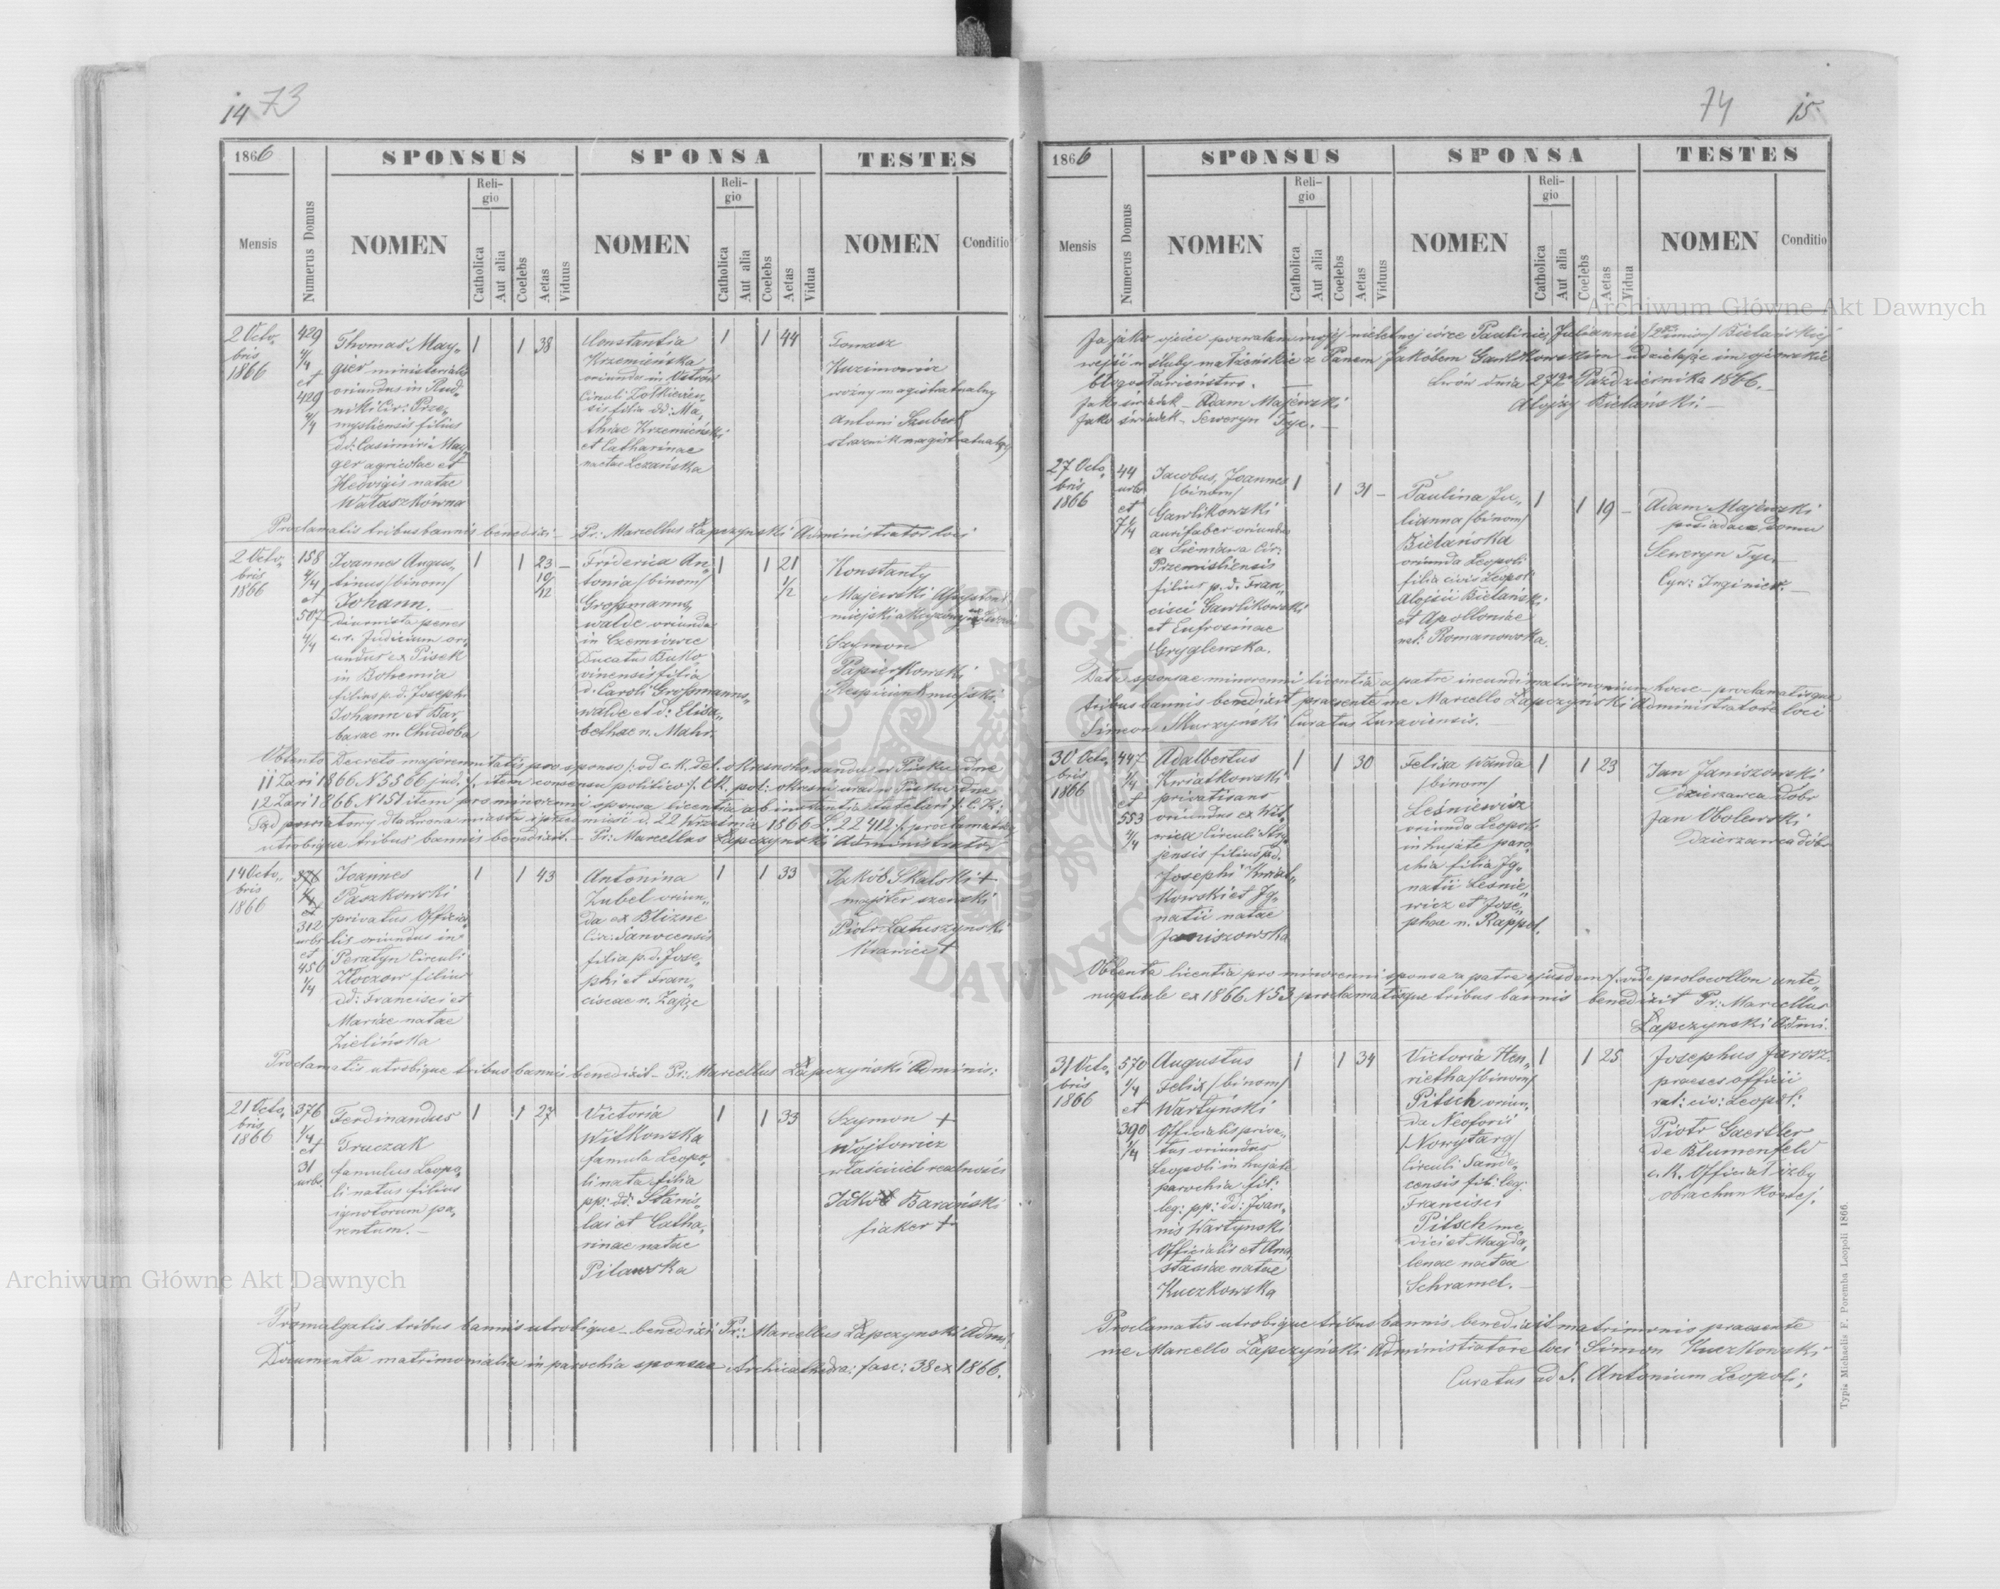 14 73
1866
SPONSUS
SPONSA
TESTES
Mensis
Numerus Domus
NOMEN
Religio
Catholica
Aut alia
Coelebs
Aetas
Viduus
NOMEN
Religio
Catholica
Aut alia
Coelebs
Aetas
Vidua
NOMEN
Conditio
2 Octo-
bris
1866
429
4/4
et
429
4/4
Thomas May-
gier ministerialis
oriundus in Rud-
niki Cir: Prze-
mysliensis filius
dd: Casimiri May-
ger agricolae et
Hedvigis natae
Wataszkówna
1 1 38
Constantia
Krzemińska
oriunda in
Circuli Zolkievien-
sis filia dd: Ma-
thiae Krzemiński
et Catharinae
natae Lezańska
1 1 44
Tomasz
Kuzimowicz
woźny magistratualny
Antoni Szuber
strażnik magistratualny
Proclamatis tribus bannis benedixi - Pr: Marcellus Łapczynski Administrator loci
2 Octo-
bris
1866
158
4/4
et
507
4/4
Joannes Augus-
tinus /binom/
Johann.
diurnista penes
c.r. Judicium ori-
undus ex Pisek
in Bohemia
filius p.d. Josephi
Johann et Bar-
barae n. Chudoba
1 1 23 -
10/12
Friderica An-
tonia /binom/
Grossmanns-
walde oriunda
in Czerniowce
Ducatus Buko-
vinensis filia
d. Caroli Grossmanns-
walde et d: Elisa-
bethae n. Mahr.
1 1 21
1/2
Konstanty
Majewski
miejski akcyzowy
Szymon
Papierkowski
Respicient miejski
11 Zari 1866 N 5566 jud: /. item consensu politico /.
12 Zari 1866 N 151 item pro minorenni sponsa licentia ab instantia tutelari /: C.K:
Sąd powiatowy dla Lwowa miasta i przedmieść d. 22 Września 1866 L. 22412 /. proclamatis
utrobique tribus bannis benedixit. - Pr: Marcellus Łapczynski Administrator
14 Octo-
bris
1866
376
4/4
et
312
urbs
et
456
1/4
Joannes
Paszkowski
privatus Officia-
lis oriundus in
Peratyn Circuli
Złoczow filius
dd: Francisci et
Mariae natae
Zielińska
1 1 43
Antonina
Zubel oriun-
da ex Blizne
Cir: Sanocensis
filia p.d. Jose-
phi et Fran-
ciscae n. Zając
1 1 33
Jakób Skalski +
majster szewski
Piotr Latuszynski
Krawiec +
Proclamatis utrobique tribus bannis benedixit - Pr: Marcellus Łapczyński Adminis:
21 Octo-
bris
1866
376
1/4
et
31
urbs
Ferdinandus
Truczak
famulus Leopo-
li natus filius
ignotorum pa-
rentum. -
1 1 27
Victoria
Witkowska
famula Leopo-
li nata filia
pp: dd: Stanis-
lai et Catha-
rinae natae
Pilawska
1 1 33
Szymon +
Wojtowicz
właściciel realności
Jakób Barański
fiaker +
Promulgatis tribus bannis utrobique - benedixi Pr: Marcellus Łapczynski Adm:
Documenta matrimonialia in parochia sponsae Archicathedra: fasc: 38 ex 1866.
74 15
1866
SPONSUS
SPONSA
TESTES
Mensis
Numerus Domus
NOMEN
Religio
Catholica
Aut alia
Coelebs
Aetas
Viduus
NOMEN
Religio
Catholica
Aut alia
Coelebs
Aetas
Vidua
NOMEN
Conditio
Ja jako ojciec pozwalam mojej nieletniej córce Paulinie, Juliannie Bielańskiej
wejść w śluby małżeńskie z Panem Jakóbem Gawlikowskim udzielając im ojcowskie
błogosławieństwo. Lwów dnia 27go Października 1866. -
Jako świadek - Adam Majewski Aloyzy Bielański. -
Jako świadek - Seweryn Tyc. -
27 Octo-
bris
1866
44
urbs
et
7 1/4
Jacobus, Joannes
/binom/
Gawlikowski
aurifaber oriundus
ex Sieniawa Cir:
Przemisliensis
filius p.d. Fran-
cisci Gawlikowski
et Eufrosinae
Gryglewska.
1 1 31 -
Paulina Ju-
lianna /binom/
Bielańska
oriunda Leopoli
filia civis Leopol:
Alojsii Bielański
et Apolloniae
nat: Romanowska.
1 1 19 -
Adam Majewski
posiadacz domu
Seweryn Tyc -
Cyw: Inginier. -
Data sponsae minorenni licentia a patre ineundi matrimonium hocce - proclamatisque
tribus bannis benedixit praesente me Marcello Łapczyński Administratore loci
Simeon Murzyński Curatus Zuraviensis. -
30 Octo-
bris
1866
447
1/4
et
553
4/4
Adalbertus
Kwiatkowski
privatisans
oriundus ex
Circuli Stry-
jensis filius p.d.
Josephi Kwiat-
kowski et Ig-
natii natae
Janiszowska
1 1 30
Felixa Wanda
/binom/
Leśniewicz
oriunda Leopoli
in hujate paro-
chia filia Ig-
natii Leśnie-
wicz et Jose-
phae n. Rappel.
1 1 23
Jan Janiszowski
Dzierzawca dóbr
Jan Obolewski
Dzierzawca dóbr
Obtenta licentia pro minorenni sponsa a patre ejusdem /. vide protocollon ante-
nuptiale ex 1866 N 53 proclamatisque tribus bannis benedixit Pr: Marcellus
Łapczynski Admi.
31 Octo-
bris
1866
570
1/4
et
390
1/4
Augustus
Felix /binom/
Wartyński
Officialis priva-
tus oriundus
Leopoli in hujate
parochia fil:
leg: pp: dd: Joan-
nis Wartynski
Officialis et Ana-
stasiae natae
Kuczkowska
1 1 34
Victoria Hen-
rietha /binom/
Pitsch oriun-
da Neoforii
/Nowytarg/
Circuli Sande-
censis fil: leg:
Francisci
Pitsch me-
dici et Magda-
lenae natae
Schramel. -
1 1 25
Josephus Jarosz
praeses officii
rat: civ: Leopol:
Piotr Gaertler
de Blumenfeld
c.k. Official izby
obrachunkowej.
Proclamatis utrobique tribus bannis, benedixit matrimonio praesente
me Marcello Łapczyński Administratore loci Simon Kuczkowski
Curatus ad S. Antonium Leopoli.
Typis Michaelis F. Poremba Leopoli 1866.
Archiwum Główne Akt Dawnych
Archiwum Główne Akt Dawnych
ARCHIWUM GŁÓWNE AKT DAWNYCH